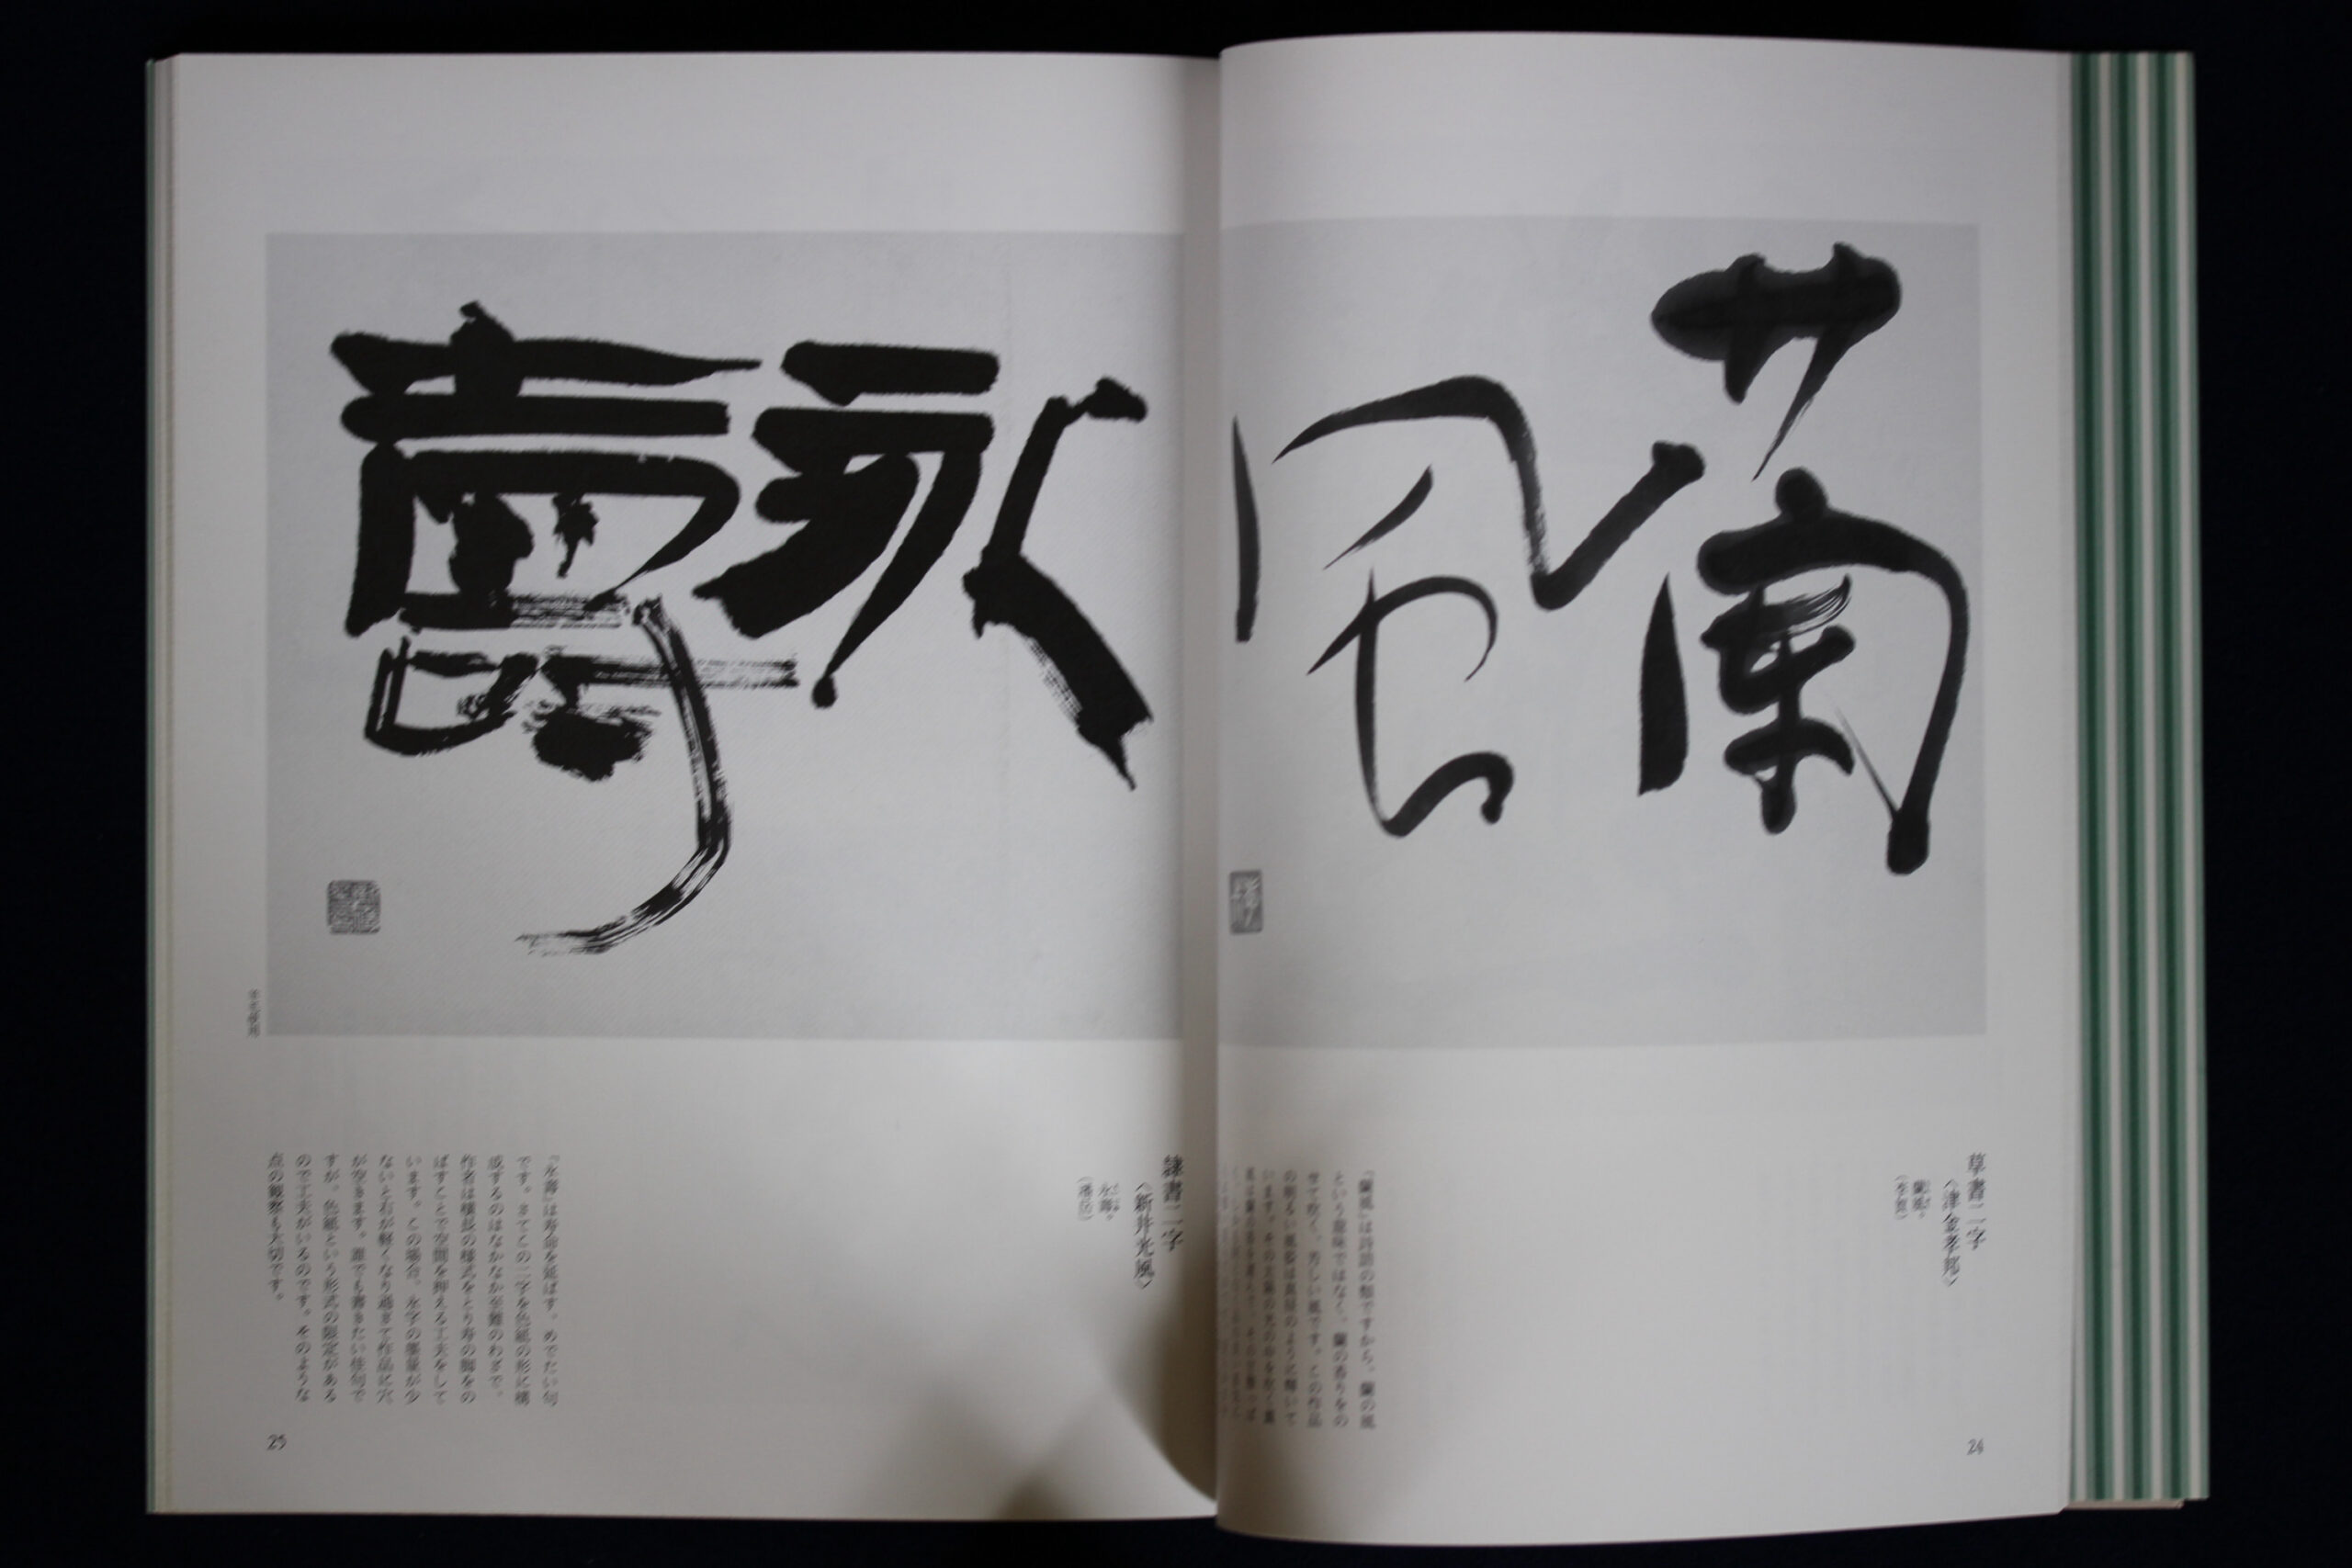 蘭風
草書二字
〈津金孝邦〉
蘭風。
「蘭風」は詩語の類ですから、蘭の風
という意味ではなく、蘭の香りをの
せて吹く、芳しい風です。この作品
の明るい風姿は真昼のように輝いて
います。その太陽の光の中を吹く薫
24
永壽
隷書二字
〈新井光風〉
永壽。
「永壽」は寿命を延ばす。めでたい句
です。さてこの二字を色紙の形に構
成するのはなかなか至難のわざで、
作者は横長の様式をとり寿の脚をの
ばすことで空間を抑える工夫をして
います。この場合、永字の墨量が少
ないと右が軽くなり過ぎて作品に穴
が空きます。誰でも書きたい佳句で
すが、色紙という形式の限定がある
ので工夫がいるのです。そのような
点の観察も大切です。
25